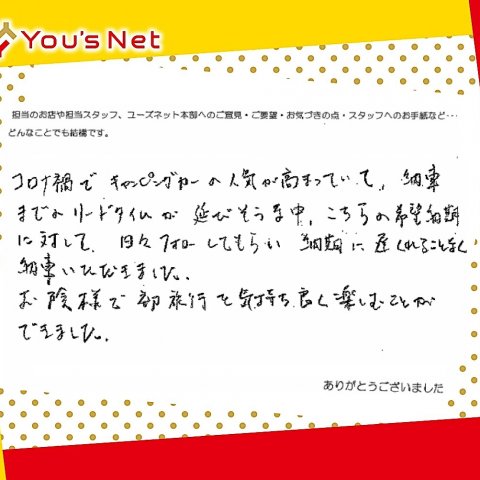 You's Net
担当のお店や担当スタッフ、ユーズネット本部へのご意見・ご要望・お気づきの点・スタッフへのお手紙など…
どんなことでも結構です。
コロナ禍でキャンピングカーの人気が高まっていて、納車
までのリードタイムが延びそうな中、こちらの希望納期
に対して、日々フォローしてもらい納期に遅くれることなく
納車いただきました。
お陰様で旅行を気持ち良く楽しむことが
できました。
ありがとうございました